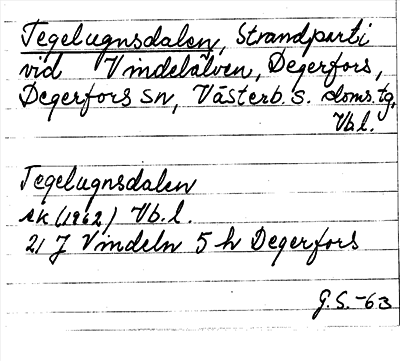 Tegelugnsdalen, Strandparti
vid Vindelälven, Degerfors,
Degerfors sn, Västerb. s. doms.tg,
Vb.l.
Tegelugnsdalen
ek (1962) Vb.l.
21 J Vindeln 5 h Degerfors
G.S.-63